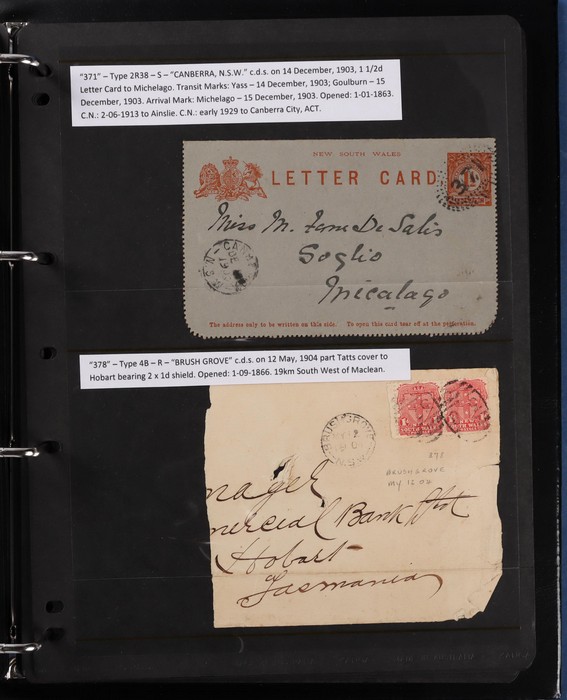 "371" – Type 2R38 – S – "CANBERRA, N.S.W." c.d.s. on 14 December, 1903, 1 1/2d
Letter Card to Michelago. Transit Marks: Yass – 14 December, 1903; Goulburn – 15
December, 1903. Arrival Mark: Michelago – 15 December, 1903. Opened: 1-01-1863.
C.N.: 2-06-1913 to Ainslie. C.N.: early 1929 to Canberra City, ACT.
NEW SOUTH WALES
LETTER CARD
371
Miss M. Fane De Salis
Soglio
Micalago
The address only to be written on this side. To open this card tear off at the perforation.
"378" – Type 4B – R – "BRUSH GROVE" c.d.s. on 12 May, 1904 part Tatts cover to
Hobart bearing 2 x 1d shield. Opened: 1-09-1866. 19km South West of Maclean.
BRUSH GROVE
N.S.W
378
BRUSHGROVE
MY 12 04
nager
mercial Bank
Hobart
Tasmania